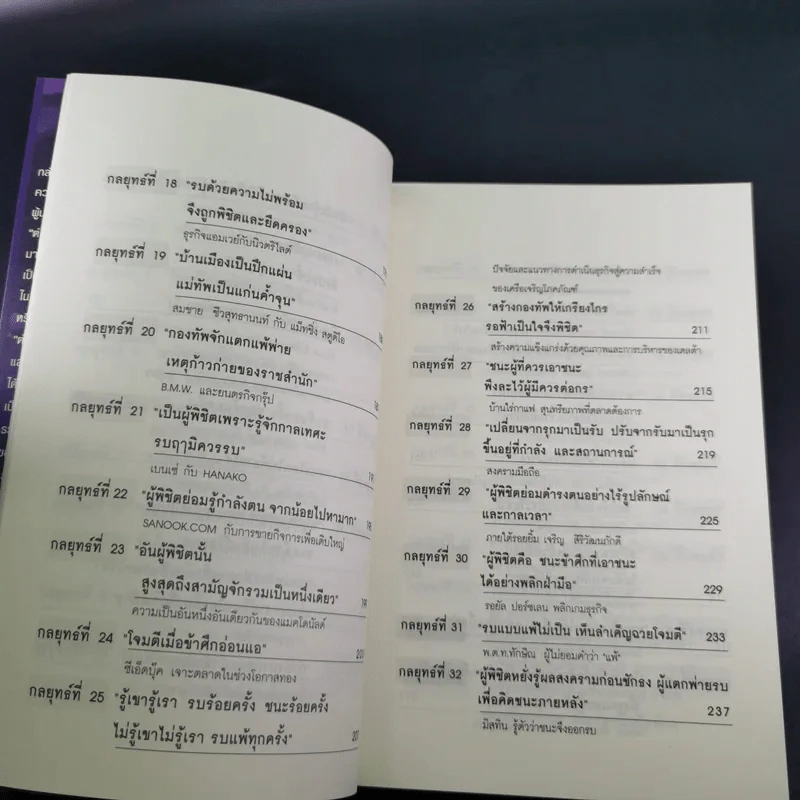 กลยุทธ์ที่ 18 "รบด้วยความไม่พร้อม
จึงถูกพิชิตและยึดครอง"
ธุรกิจแอมเวย์กับนิวตริไลต์
กลยุทธ์ที่ 19 "บ้านเมืองเป็นปึกแผ่น
แม่ทัพเป็นแก่นค้ำจุน"
สมชาย ชีวสุทธานนท์ กับ แม็ทชิ่ง สตูดิโอ
กลยุทธ์ที่ 20 "กองทัพจักแตกแพ้พ่าย
เหตุก้าวก่ายของราชสำนัก"
B.M.W. และยนตรกิจกรุ๊ป
กลยุทธ์ที่ 21 "เป็นผู้พิชิตเพราะรู้จักกาลเทศะ
รบฤามิควรรบ"
เบนเซ่ กับ HANAKO
กลยุทธ์ที่ 22 "ผู้พิชิตย่อมรู้กำลังตน จากน้อยไปหามาก"
SANOOK.COM กับการขายกิจการเพื่อเติบใหญ่
กลยุทธ์ที่ 23 "อันผู้พิชิตนั้น
สูงสุดถึงสามัญจักรวมเป็นหนึ่งเดียว"
ความเป็นอันหนึ่งอันเดียวกันของแมคโดนัลด์
กลยุทธ์ที่ 24 "โจมตีเมื่อข้าศึกอ่อนแอ"
ซีเอ็ดบุ๊ค เจาะตลาดในช่วงโอกาสทอง
กลยุทธ์ที่ 25 "รู้เขารู้เรา รบร้อยครั้ง ชนะร้อยครั้ง
ไม่รู้เขาไม่รู้เรา รบแพ้ทุกครั้ง"
ปัจจัยและแนวทางการดำเนินธุรกิจสู่ความสำเร็จ
ของเครือเจริญโภคภัณฑ์
กลยุทธ์ที่ 26 "สร้างกองทัพให้เกรียงไกร
รอฟ้าเป็นใจจึงพิชิต" 211
สร้างความแข็งแกร่งด้วยคุณภาพและการบริหารของเดลต้า
กลยุทธ์ที่ 27 "ชนะผู้ที่ควรเอาชนะ
พึงละไว้ผู้มีควรต่อกร" 215
บ้านไร่กาแฟ สุนทรียภาพที่ตลาดต้องการ
กลยุทธ์ที่ 28 "เปลี่ยนจากรุกมาเป็นรับ ปรับจากรับมาเป็นรุก
ขึ้นอยู่ที่กำลัง และสถานการณ์" 219
สงครามมือถือ
กลยุทธ์ที่ 29 "ผู้พิชิตย่อมดำรงตนอย่างไร้รูปลักษณ์
และกาลเวลา" 225
ภายใต้รอยยิ้ม เจริญ สิริวัฒนภักดี
กลยุทธ์ที่ 30 "ผู้พิชิตคือ ชนะข้าศึกที่เอาชนะ
ได้อย่างพลิกฝ่ามือ" 229
รอยัล ปอร์ซเลน พลิกเกมธุรกิจ
กลยุทธ์ที่ 31 "รบแบบแพ้ไม่เป็น เห็นลำเค็ญฉวยโจมตี" 233
พ.ต.ท.ทักษิณ ผู้ไม่ยอมคำว่า "แพ้"
กลยุทธ์ที่ 32 "ผู้พิชิตหยั่งรู้ผลสงครามก่อนชักธง ผู้แตกพ่ายรบ
เพื่อคิดชนะภายหลัง" 237
มิสทิน รู้ตัวว่าชนะจึงออกรบ